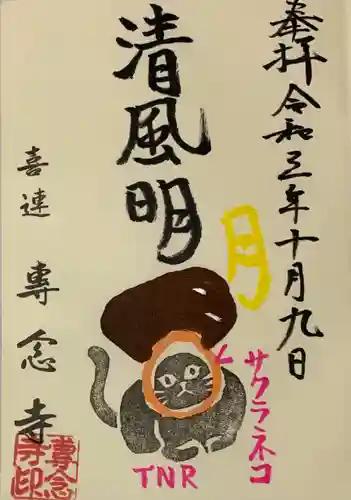 奉拝 令和五年十月九日
清風明
月
サクラネコ
TNR
喜連 專念寺
專念
寺印